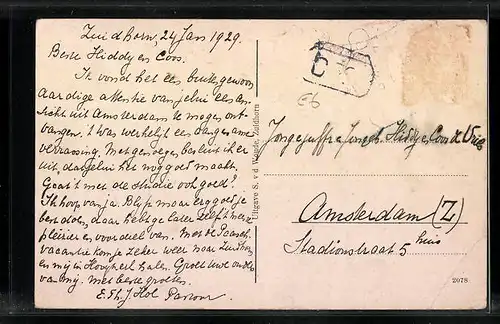 Zuidhorn, 24 Jan 1929.
Beste Hiddy en Coos.
Ik vond het een buitengewoon
aardige attentie van jelui een an-
sicht uit Amsterdam te mogen ont-
vangen. 't was werkelijk een aangename
verrassing. Met genoegen besluit ik er
uit, dat jelui het nog goed maakt.
Gaat 't met de studie ook goed?
Ik hoop van ja. Blijf maar erg goed je
best doen, daar heb je later zelf 't meeste
plezier en voordeel van. Met de Paasch-
vacantie kom je zeker weer naar Zuidhorn
en mij in Hoogkerk halen. Groet uwe ouders
van mij. Met beste groeten
E. Th. J. Hol
Uitgave S. v. d. Zuidhorn
C6
Jongejuffr. Hiddy Coos de Vries
Amsterdam (Z)
Stadionstraat 5 huis
2078